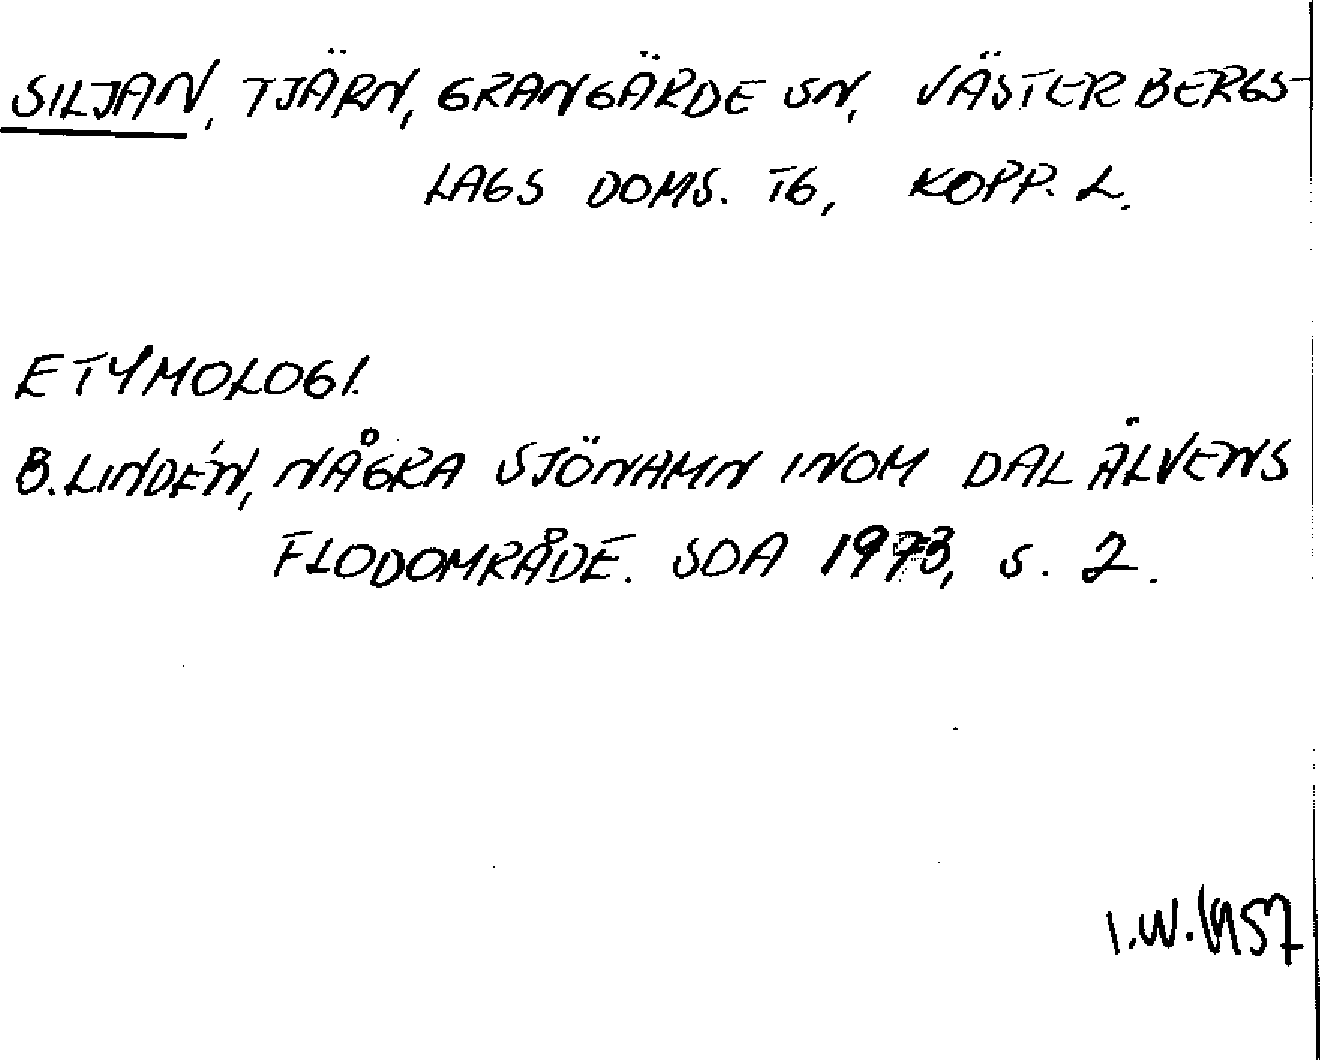 SILJAN, TJÄRN, GRANGÄRDE SN, VÄSTERBERGS-
LAGS DOMS. TG, KOPP. L.
ETYMOLOGI.
B. LINDÉN, NÅGRA SJÖNAMN INOM DALÄLVENS
FLODOMRÅDE. SOÄ 1973, S. 2.
I.W. 1957